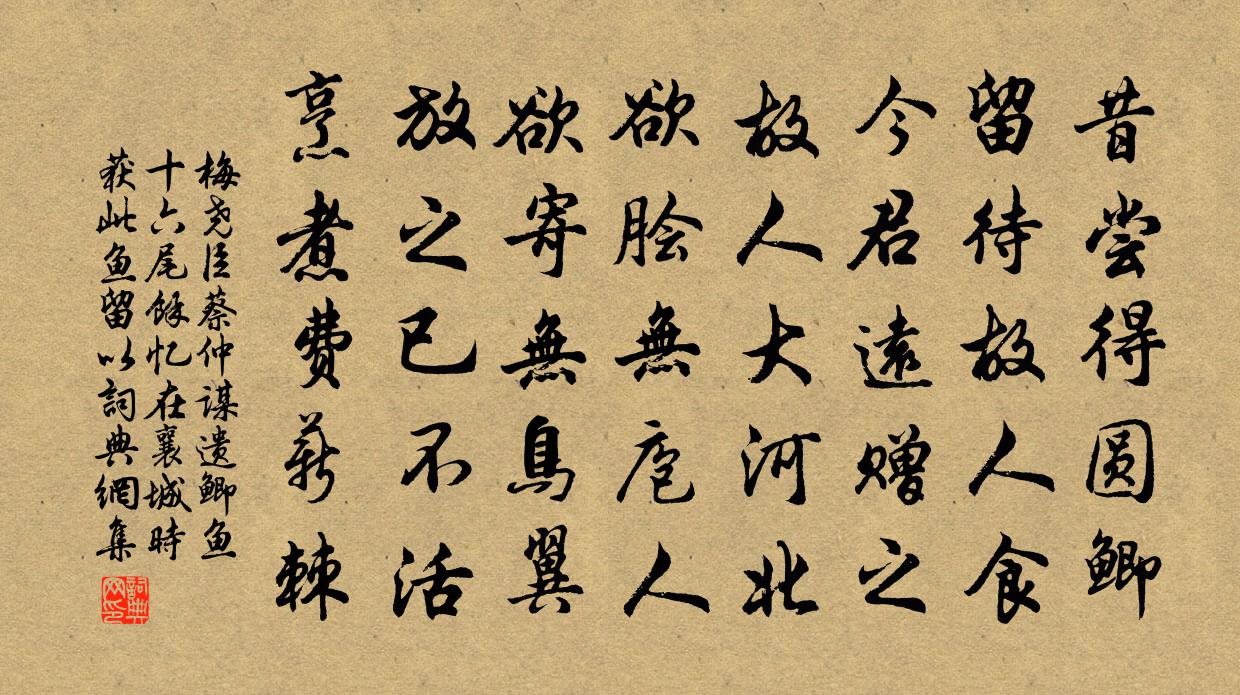 昔尝得圆鲫
留待故人食
今君遠赠之
故人大河北
欲脍無庖人
欲寄無鳥翼
放之已不活
烹煮費薪棘
梅尧臣蔡仲谋遗鲫鱼
十六尾餘忆在襄城時
获此鱼留以詞典網集
詞典网印